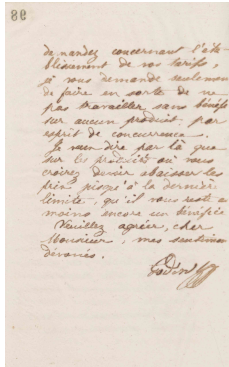 86
demandez concernant l'éta-
blissement de vos tarifs,
je vous demande seulement
de faire en sorte de ne
pas travailler sans bénéfice
sur aucun produit, par
esprit de concurrence.
Je veux dire par là que
sur les produits où vous
croirez devoir abaisser les
prix jusqu'à la dernière
limite, qu'il vous reste au
moins encore un bénéfice
Veuillez agréer, cher
Monsieur, mes sentiments
dévoués.
Godin